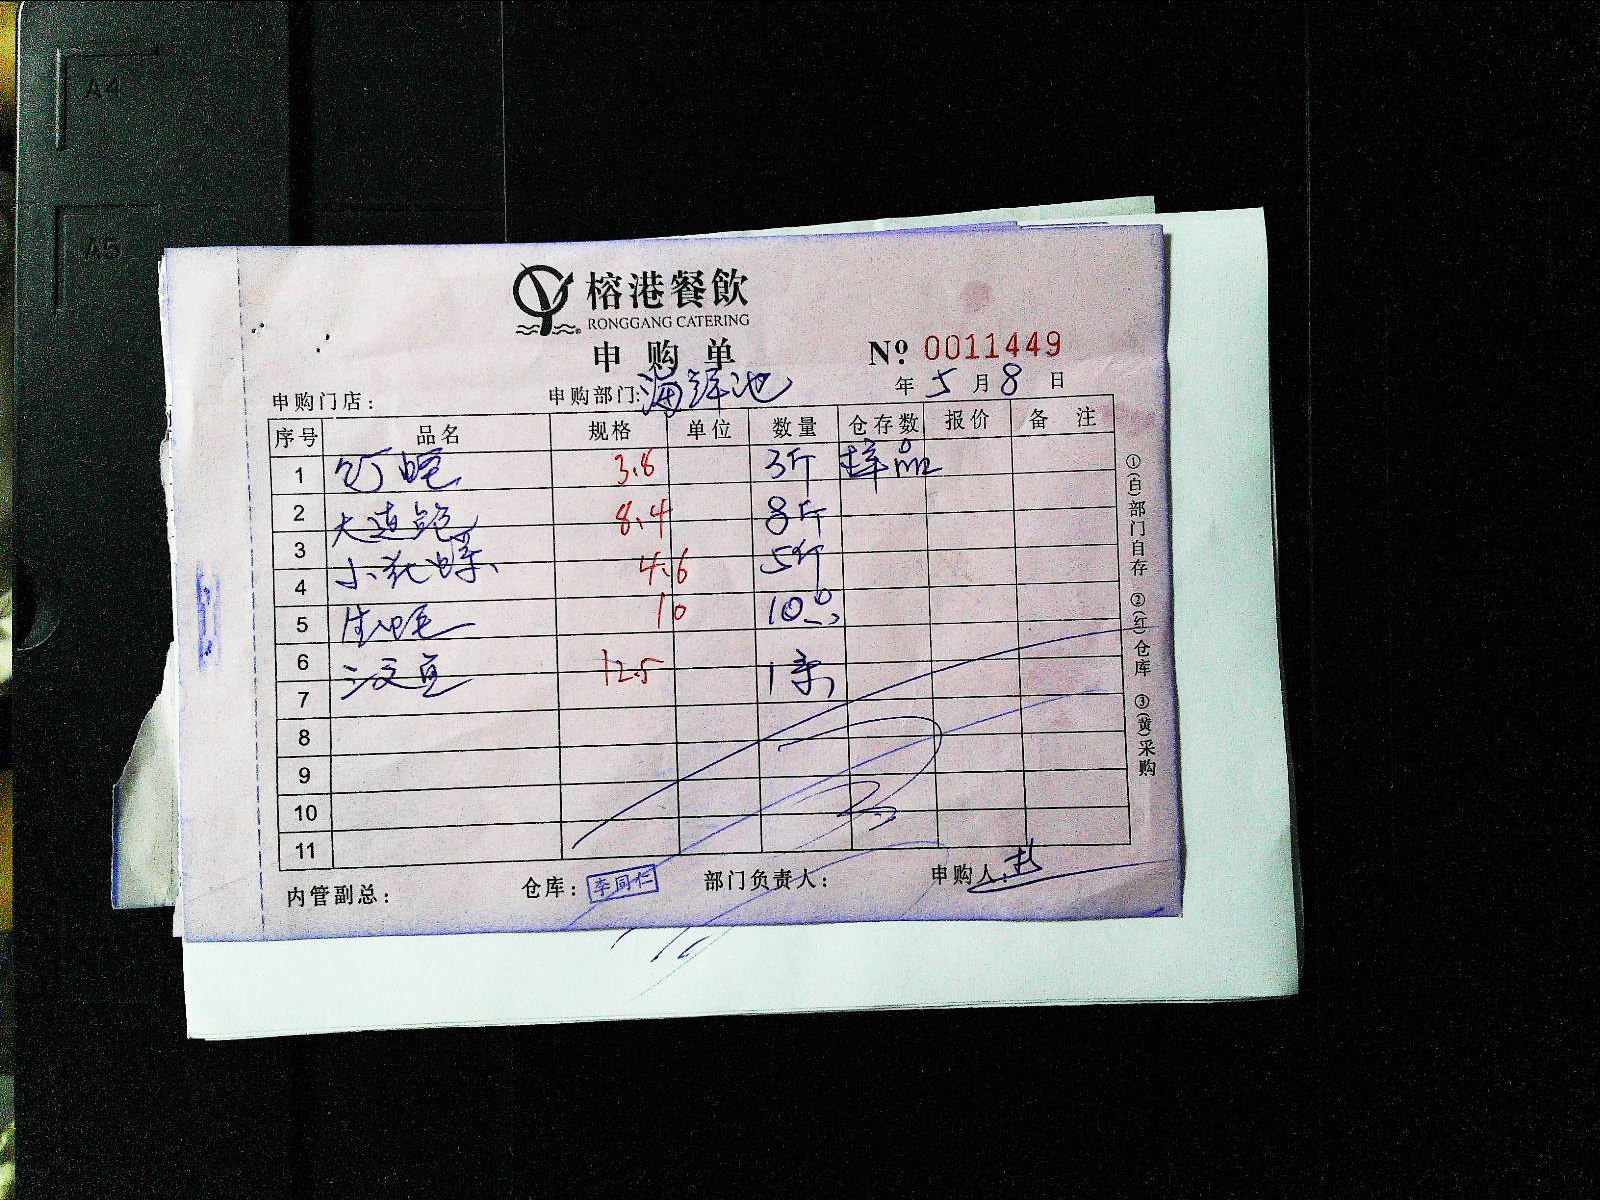 A4
A5
榕港餐飲
RONGGANG CATERING
申购单
Nº 0011449
申购门店： 申购部门：海鲜池 年 5 月 8 日
序号 品名 规格 单位 数量 仓存数 报价 备 注
1 3.8 3斤 样品
2 大连鲍 8.4 8斤
3 小花螺 4.6 5斤
4
5 生蚝 10 10只
6 三文鱼 12.5 1条
7
8
9
10
11
①(白)部门自存 ②(红)仓库 ③(黄)采购
内管副总： 仓库：李同仁 部门负责人： 申购人：